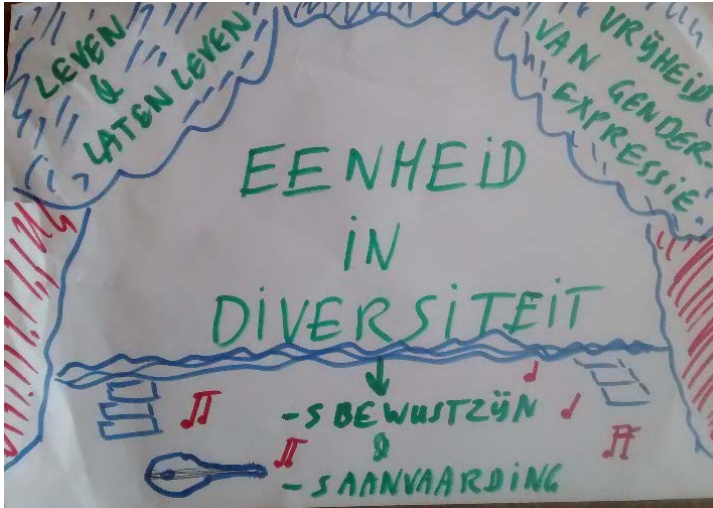 LEVEN
&
LATEN LEVEN
VRIJHEID
VAN GENDER-
EXPRESSIE
EENHEID
IN
DIVERSITEIT
-SBEWUSTZIJN
&
-SAANVAARDING